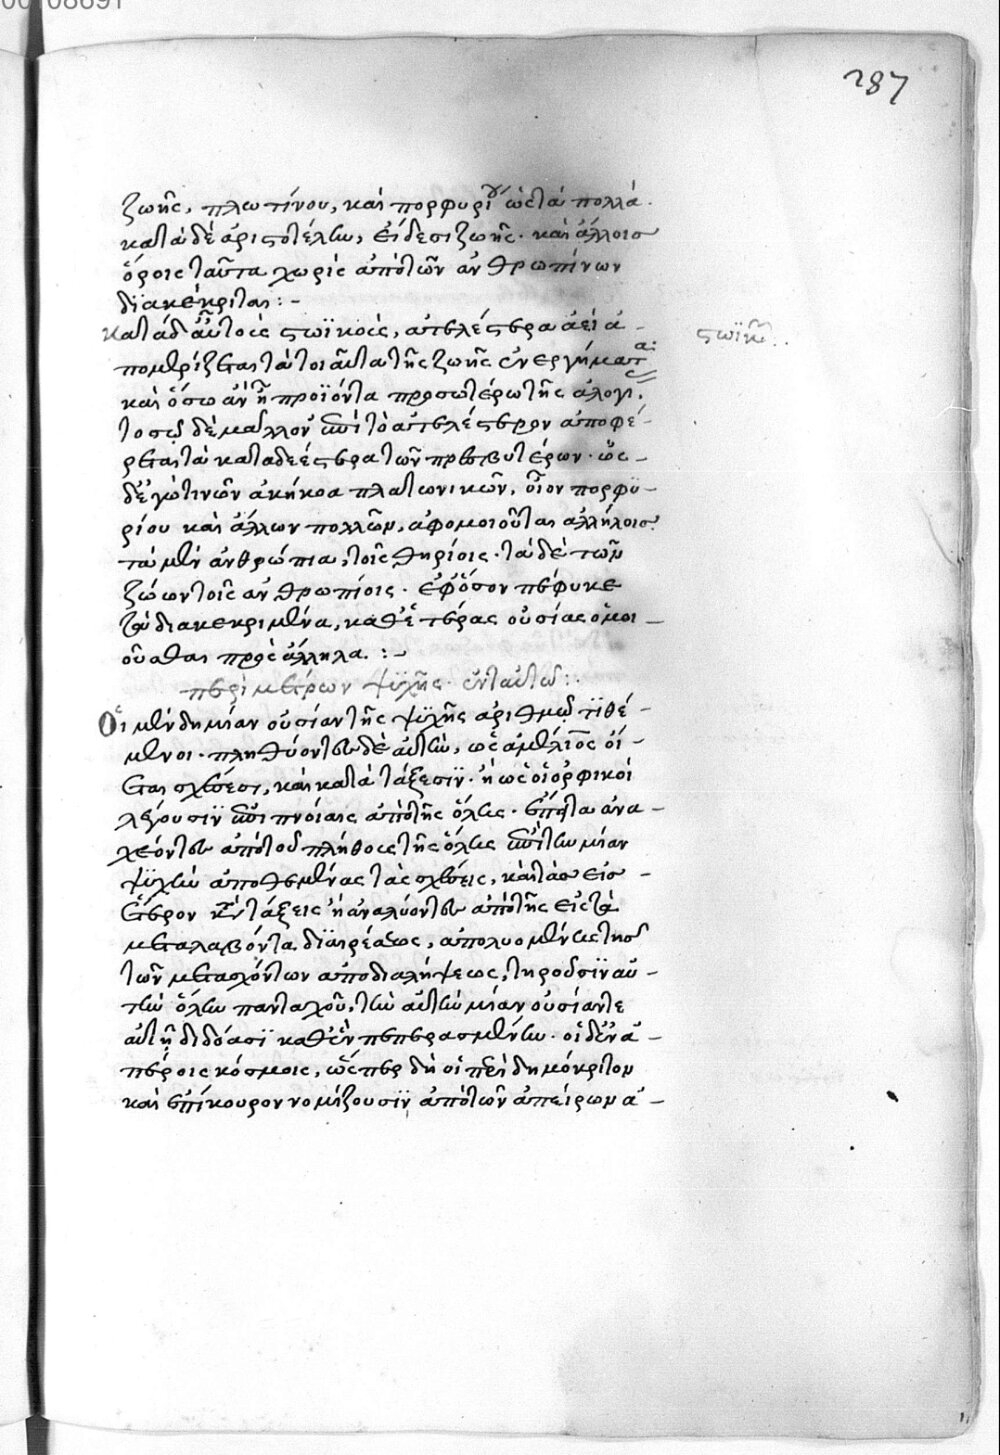 287
ζωῆς, πλωτίνου, καὶ πορφυρίου ὡς τὰ πολλά.
κατὰ δὲ ἀριστοτέλην, εἴδεσι ζωῆς· καὶ ἄλλοις
ὅροις ταῦτα χωρὶς ἀπὸ τῶν ἀνθρωπίνων
διακέκριται:-
κατὰ δ' αὖ τοὺς στωϊκοὺς, ἀτελέστερα ἀεὶ ἀ-
στωϊκῶν
πομερίζεται τὰ τοιαῦτα τῆς ζωῆς ἐνεργήματα
καὶ ὅσω ἂν ᾖ προϊόντα προσωτέρω τῆς ἀλογί,
τοσῷδε μᾶλλον ἐπὶ τὸ ἀτελέστερον ἀποφέ-
ρεται τὰ καταδεέστερα τῶν πρεσβυτέρων· ὡς
δ' ἐγώ τινων ἀκήκοα πλατωνικῶν, οἷον πορφυ-
ρίου καὶ ἄλλων πολλῶν, ἀφομοιοῦται ἀλλήλοις
τὰ μὲν ἀνθρώπια, τοῖς θηρίοις· τὰ δὲ τῶν
ζώων τοῖς ἀνθρωπίοις· ἐφ' ὅσον πέφυκε
τὰ διακεκριμένα, καθ' ἑτέρας οὐσίας ὁμοι-
οῦσθαι πρὸς ἄλληλα.:-
περὶ μέτρων ψυχῆς ἐνταυτῶ:.
Οἱ μὲν δὴ μίαν οὐσίαν τῆς ψυχῆς ἀριθμῷ τιθέ-
μενοι· πληθύοντες δὲ αὐτὴν, ὡς ἀμέλιος οἴ-
εται σχέσεσι, καὶ κατατάξεσιν· ἢ ὡς οἱ ὀρφικοὶ
λέγουσιν ἐπιπνοίαις ἀπὸ τῆς ὅλης· ἔπειτα ἀνα-
χέοντες ἀπὸ τοῦ πλήθους τῆς ὅλης ἐπὶ τὴν μίαν
ψυχὴν ἀποθεμένας τὰς σχέσεις, καὶ τὰς εἰς
ἕτερον κατατάξεις ἢ ἀναλύοντες ἀπὸ τῆς εἰς τὰ
μεταλαβόντα διαιρέσεως, ἀπολυομένης τῆς
τῶν μετασχόντων ἀποδιαλήψεως, τηροῦσιν αὐ-
τὴν ὅλην πανταχοῦ, τὴν αὐτὴν μίαν οὐσίαν τε
αὐτῇ διδόασι καθ' ἓν πεπερασμένην· οἱ δ' ἐν ἀ-
πείροις κόσμοις, ὥσπερ δὴ οἱ περὶ δημόκριτον
καὶ ἐπίκουρον νομίζουσιν ἀπὸ τῶν ἀπείρων ἀ-